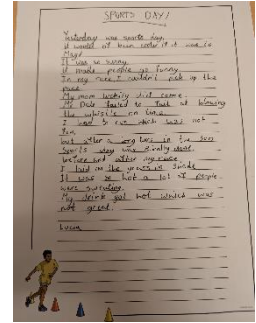 SPORTS DAY!
Yesterday was sports day.
it was in
May!
It was so sunny.
it made people go funny.
In my race I couldn't pick up the
My mum luckily did come.
Mr Dale failed to at blowing
the whistle on time.
I had to run which was not
fun.
but after a in the sun
Sports day was finally done.
before and after my race
I laid on the grass in shade.
It was so hot a lot of people
were sweating.
My drink got hot which was
not great.